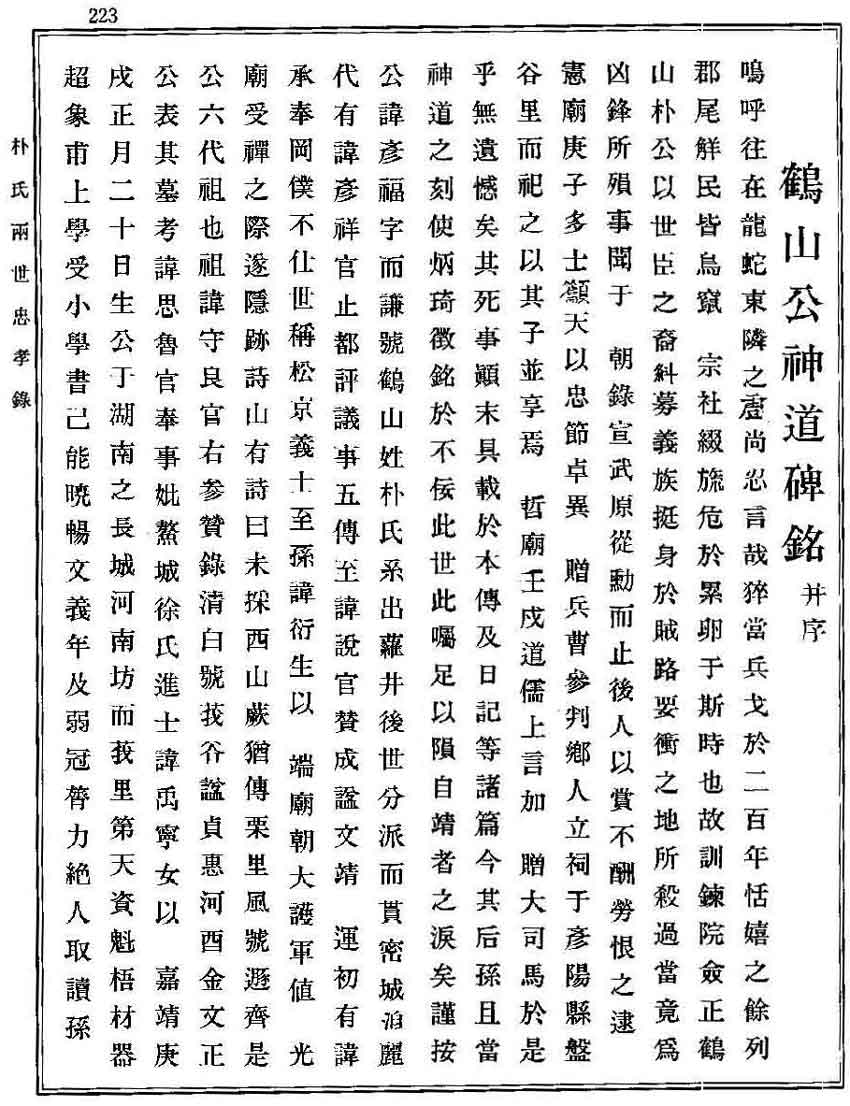 223
鶴山公神道碑銘 幷序
嗚呼往在龍蛇東隣之釁尚忍言哉猝當兵戈於二百年恬嬉之餘列
郡尾觧民皆鳥竄 宗社綴旒危於累卵于斯時也故訓鍊院僉正鶴
山朴公以世臣之裔糾募義族挺身於賊路要衝之地所殺過當竟爲
凶鋒所殞事聞于 朝錄宣武原從勳而止後人以賞不酬勞恨之逮
憲廟庚子多士籲天以忠節卓異 贈兵曹參判鄉人立祠于彥陽縣盤
谷里而祀之以其子並享焉 哲廟壬戌道儒上言加 贈大司馬於是
乎無遺憾矣其死事顚末具載於本傳及日記等諸篇今其后孫且當
神道之刻使炳琦徵銘於不佞此世此囑足以隕自靖者之淚矣謹按
公諱彥福字而謙號鶴山姓朴氏系出蘿井後世分派而貫密城洎麗
代有諱彥祥官止都評議事五傳至諱說官贊成諡文靖 運初有諱
承奉岡僕不仕世稱松京義士至孫諱衍生以 端廟朝大護軍値 光
廟受禪之際遂隱跡詩山有詩曰未採西山蕨猶傳栗里風號遯齊是
公六代祖也祖諱守良官右參贊錄淸白號莪谷諡貞惠河西金文正
公表其墓考諱思魯官奉事妣鰲城徐氏進士諱禹寧女以 嘉靖庚
戌正月二十日生公于湖南之長城河南坊而莪里第天資魁梧材器
超象甫上學受小學書已能曉暢文義年及弱冠膂力絶人取讀孫
朴氏兩世忠孝錄